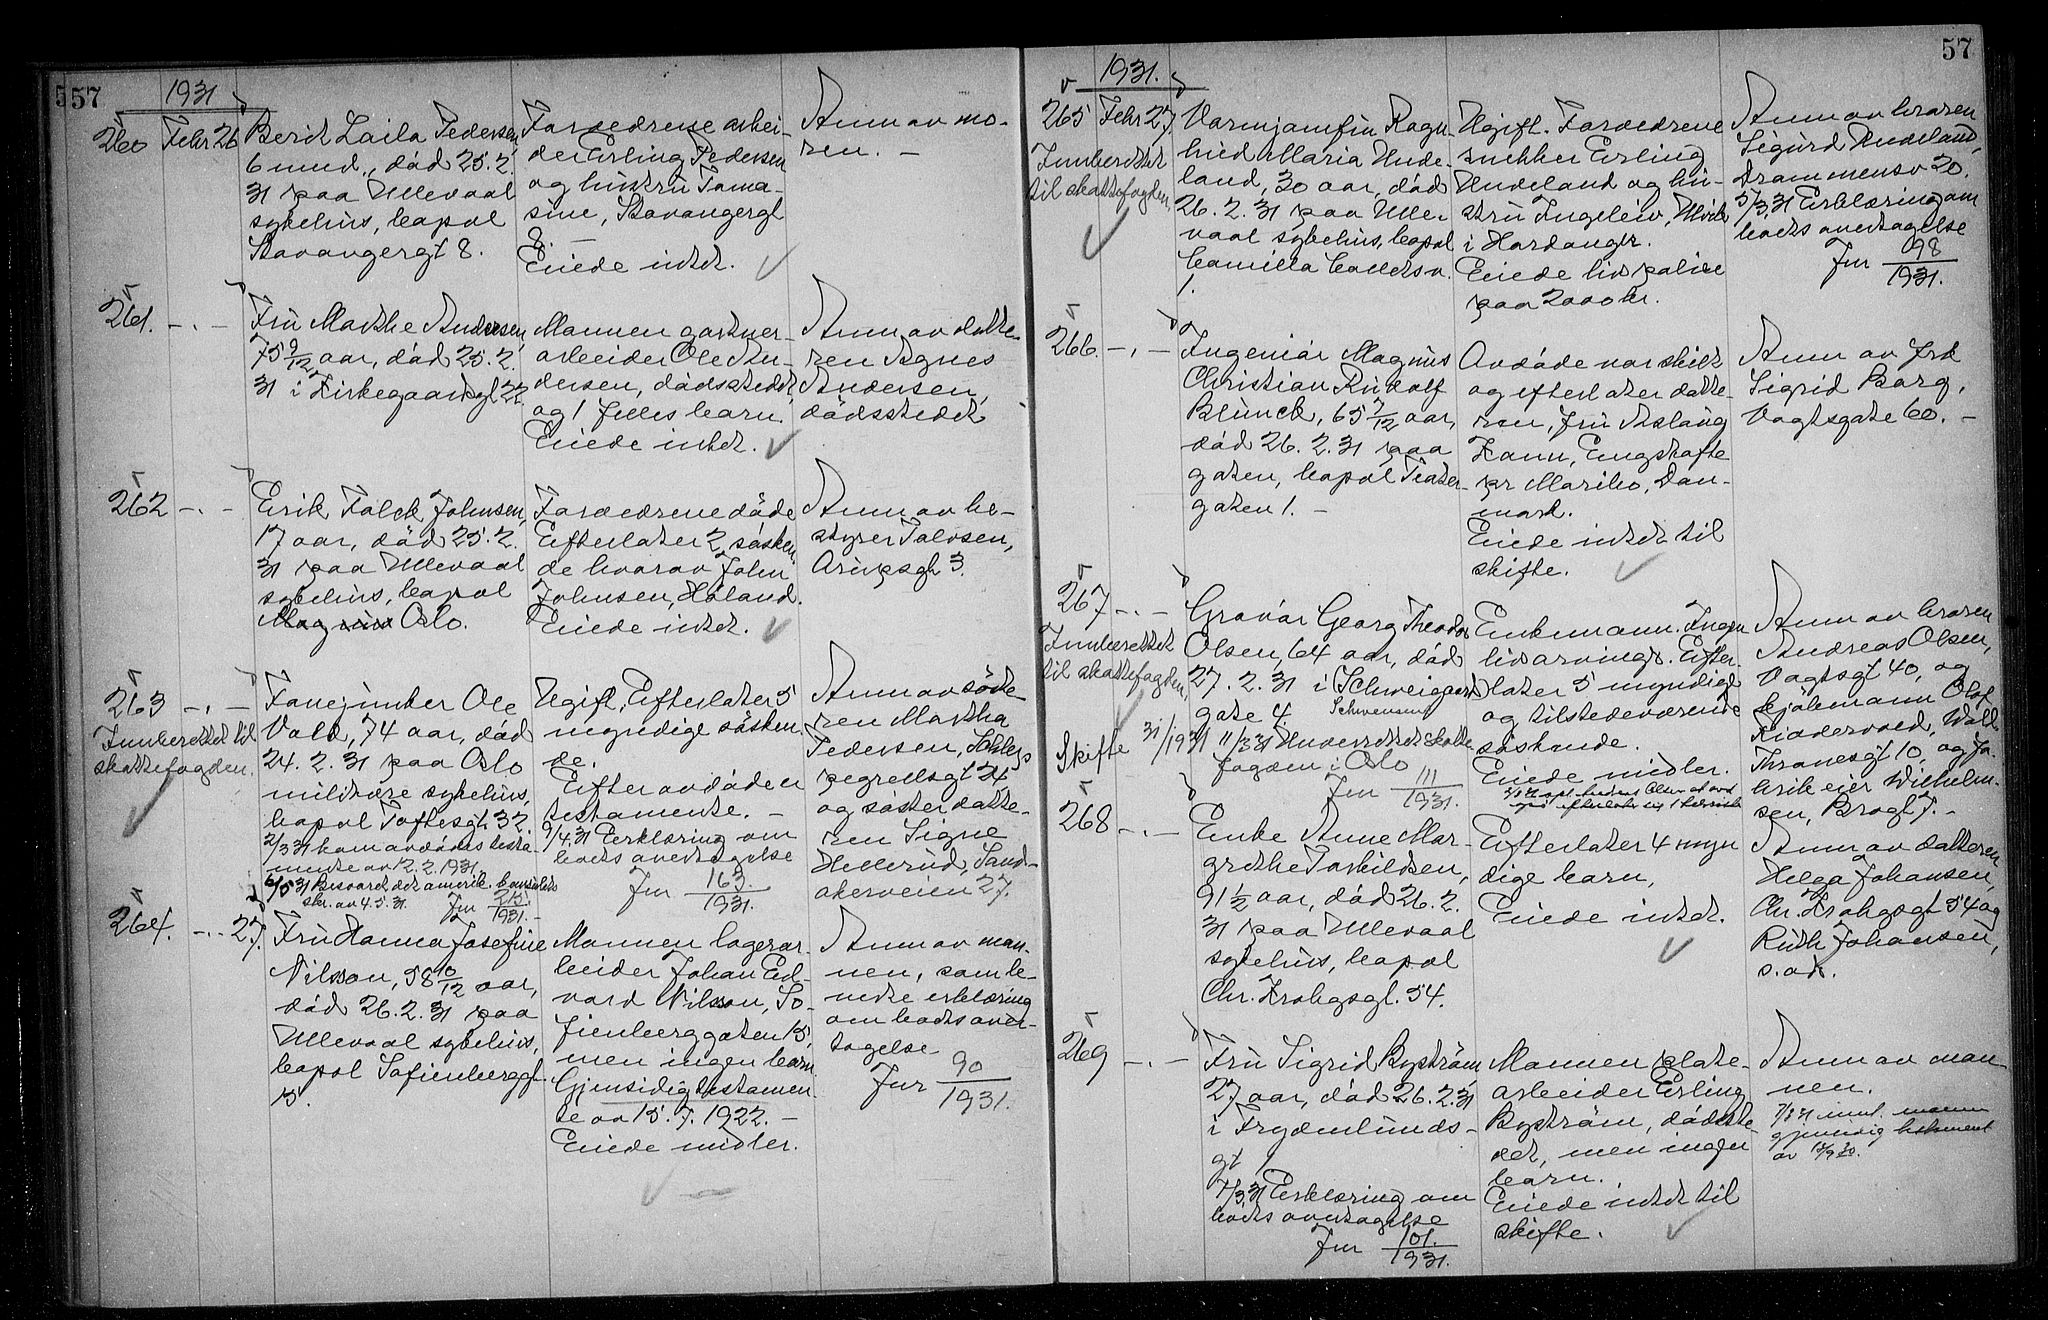 557
1931
260 Febr 26 Berit Laila Pedersen,
6 mnd., død 25.2.
31 paa Ullevaal
sykehus, bopæl
Stavangergt 8.
Forældrene arbei-
der Erling Pedersen
og hustru Toma-
sine, Stavangergt
8. —
Eiede intet.
Anm av mo-
ren. —
261. — . — Fru Marthe Andersen,
75 9/12 aar, død 25.2.
31 i Kirkegaardsgt 22
Mannen gartner-
arbeider Ole An-
dersen, dødsstedet
og 1 felles barn.
Eiede intet.
Anm av datte-
ren Agnes
Andersen,
dødsstedet
262 — . — Erik Falck Johnsen,
17 aar, død 25.2.
31 paa Ullevaal
sykehus, bopæl
Oslo.
Forældrene døde
Efterlater 2 søsken-
de hvorav John
Johnsen, Høland.
Eiede intet.
Anm av be-
styrer Halvsen,
Arupsgt 3.
263 — . — Fanejunker Ole
Vold, 74 aar, død
24.2.31 paa Oslo
militære sykehus,
bopæl Toftesgt. 32.
2/3 31 kom avdødes testa-
mente av 12.2.1931.
6/5 31 Besvaret det amerik. konsulats
skr. av 4.5.31. Jnr 215/1931. —
Innberettet til
skattefogden.
Ugift, Efterlater 5
myndige søsken
de.
Efter avdøden
testamente. —
9/4.31 Erklæring om
boets overtagelse
Jnr 163/1931.
Anm av søste
ren Martha
Pedersen, Schleps
pegrellsgt 24,
og søster datte-
ren Signe
Hellerud, Sand-
akerveien 27.
264. — . — 27. Fru Hanna Josefine
Nilsson, 58 10/12 aar,
død 26.2.31 paa
Ullevaal sykehus,
bopæl Sofienberggt
15.
Mannen lagerar-
beider Johan Ed-
vard Nilsson, So-
fienberggaten 15,
men ingen barn
Gjensidig testamen-
te av 15.7.1922. —
Eiede midler.
Anm av man-
nen, som le-
verte erklæring
om boets over-
tagelse
Jnr 90/1931.
57
1931.
265 Febr 27. Ragn-
hild Maria Hude-
land, 30 aar, død
26.2.31 paa Ulle
vaal sykehus, bopæl
Camilla Colletsv.
1.
Innberettet
til skattefogden,
Ugift. Forældrene
snekker Erling
Hudeland og hu-
stru Ingeleiv, Ulvik
i Hardanger.
Eiede livspolise
paa 2000 kr.
Anm av broren
Sigurd Hudeland,
Drammensv 20.
5/3.31 Erklæring om
boets overtagelse
Jnr 98/1931.
266. — . — Ingeniør Magnus
Christian Rudolf
Blunck, 65 7/12 aar,
død 26.2.31 paa
gaten, bopæl Teater-
gaten 1. —
Avdøde var skilt
og efterlater datte-
ren, fru Aslaug
Kann, Engstofte
pr Maribo, Dan-
mark.
Eiede intet til
skifte.
Anm av frk
Sigrid Borg,
Vogtsgate 60. —
267 — . — Gravør Georg Theodor
Olsen, 64 aar, død
27.2.31 i Schweigaard
gate 4.
Schwensens
11/3 31 Underrettet skatte-
fogden i Oslo
Jnr 111/1931.
Innberettet
til skattefogden,
Skifte 31/1931
Enkemann. Ingen
livsarvinger. Efter-
later 5 myndige
og tilstedeværende
søskende.
Eiede midler.
Anm av broren
Andreas Olsen,
Vogtsgt 40, og
kjølemann Olaf
Kiddervold, Wald
Thranesgt 10, og fa-
brikeier Wilhelm-
sen, Brogt 7. —
268 — . — Enke Anne Mar-
grethe Torkildsen,
91 1/2 aar, død 26.2.
31 paa Ullevaal
sykehus, bopæl
Chr. Krohgsgt. 54.
Efterlater 4 myn
dige barn,
Eiede intet.
Anm av datteren
Helga Johansen,
Chr. Krohgsgt 54 og
Ruth Johansen,
s. st.
269 — . — Fru Sigrid Byström,
27 aar, død 26.2.31
i Frydenlunds-
gt
7/3.31 Erklæring om
boets overtagelse
Jnr 101./1931.
Mannen plate-
arbeider Erling
Byström, dødsste-
det, men ingen
barn.
Eiede intet til
skifte.
Anm av man
nen.
7/3 31 innl. mannen
gjensidig testament
av 18/9 30.